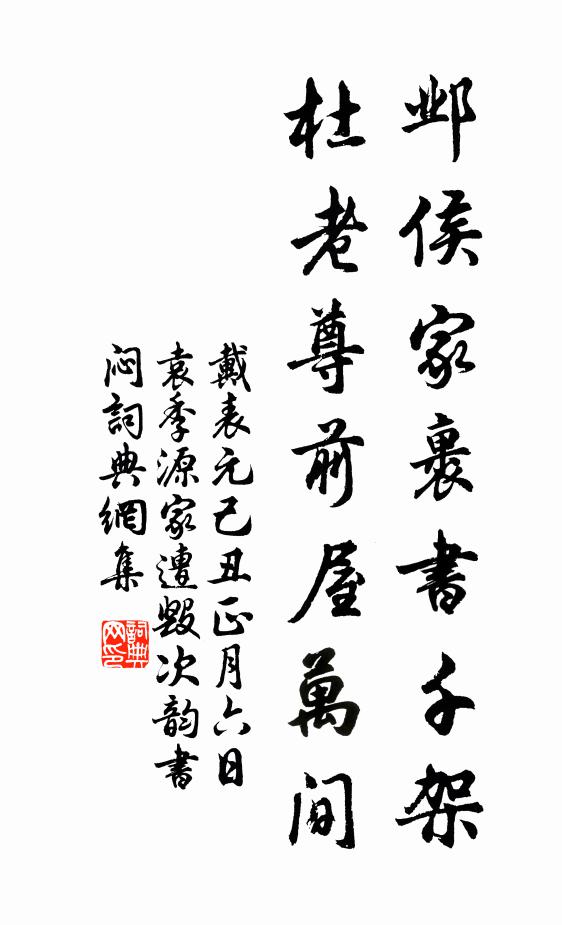 邺侯家裹書千架
杜老尊前屋萬间
戴表元己丑正月六日
袁季源家遭毁次韵書
闷詞典網集
詞典网印